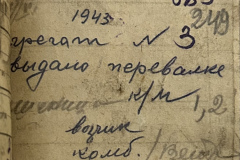 1943
249
грегат N 3
выдано перевалке
к/м 1,2
возчик
комб.